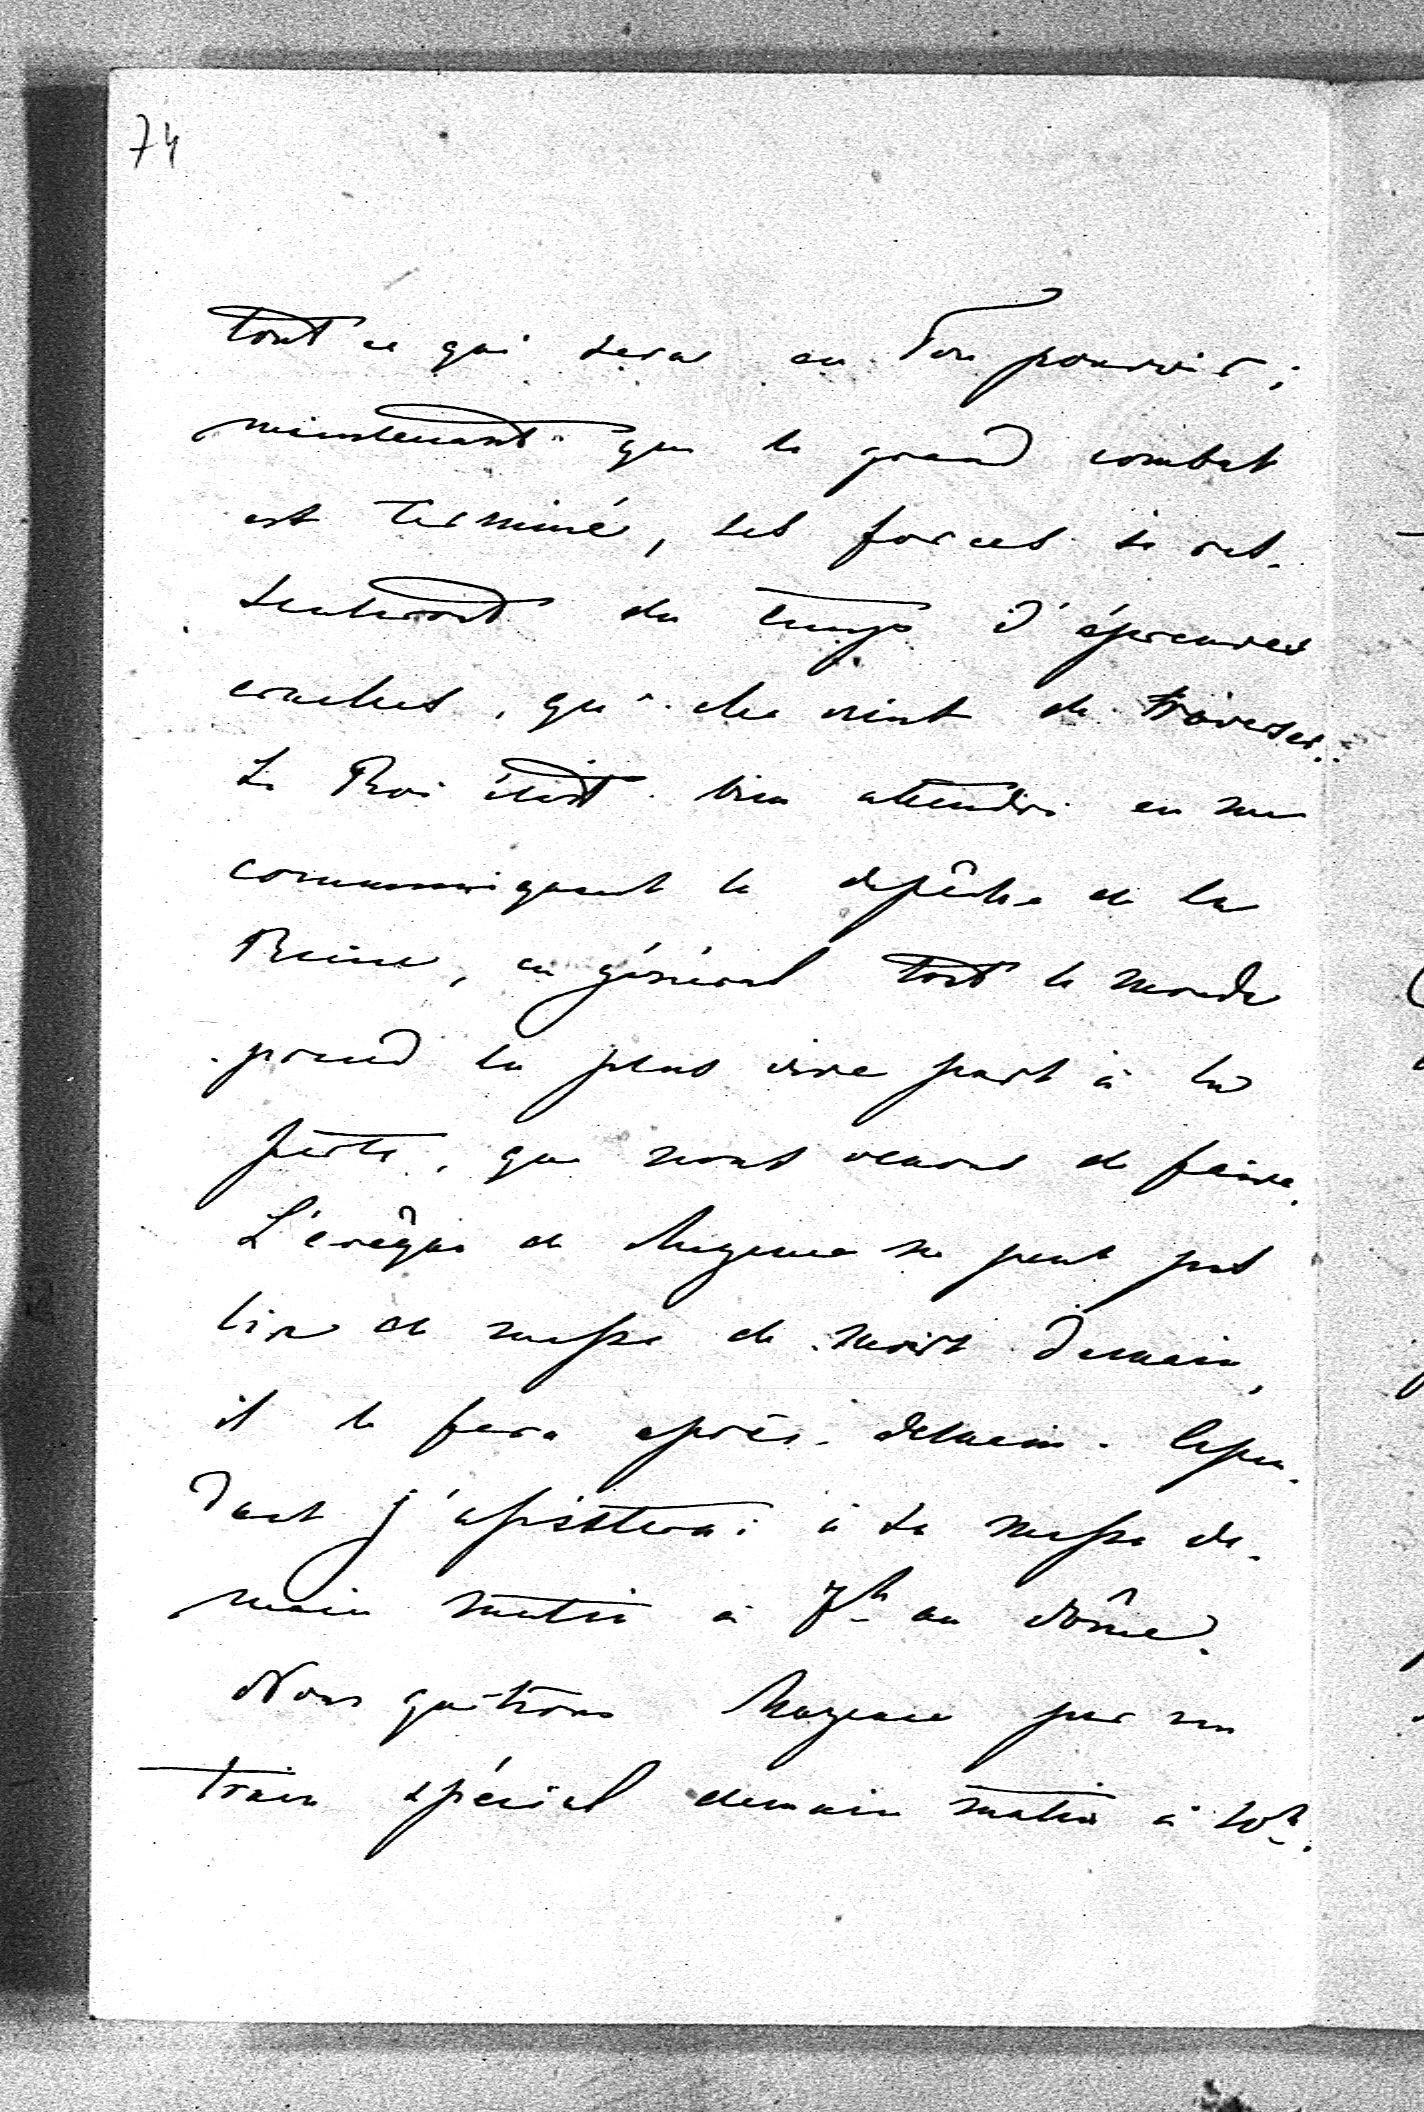 74
tout ce qui sera en Ton pouvoir;
maintenant que le grand combat
est terminé, ses forces se res-
sentiront du temps d'épreuves
cruelles, qu'elle vient de traverser.
Le Roi était bien attendri en me
communiquant la dépêche de la
Reine, en général tout le monde
prend la plus vive part à la
perte, que nous venons de faire.
L'evêque de Mayence ne peut pas
lire de messe de mort demain,
il le fera après-demain. Cepen-
dant j'assisterai à sa messe de-
main matin à 7h au dôme.
Nous quittons Mayence par un
train spécial demain matin à 10h.